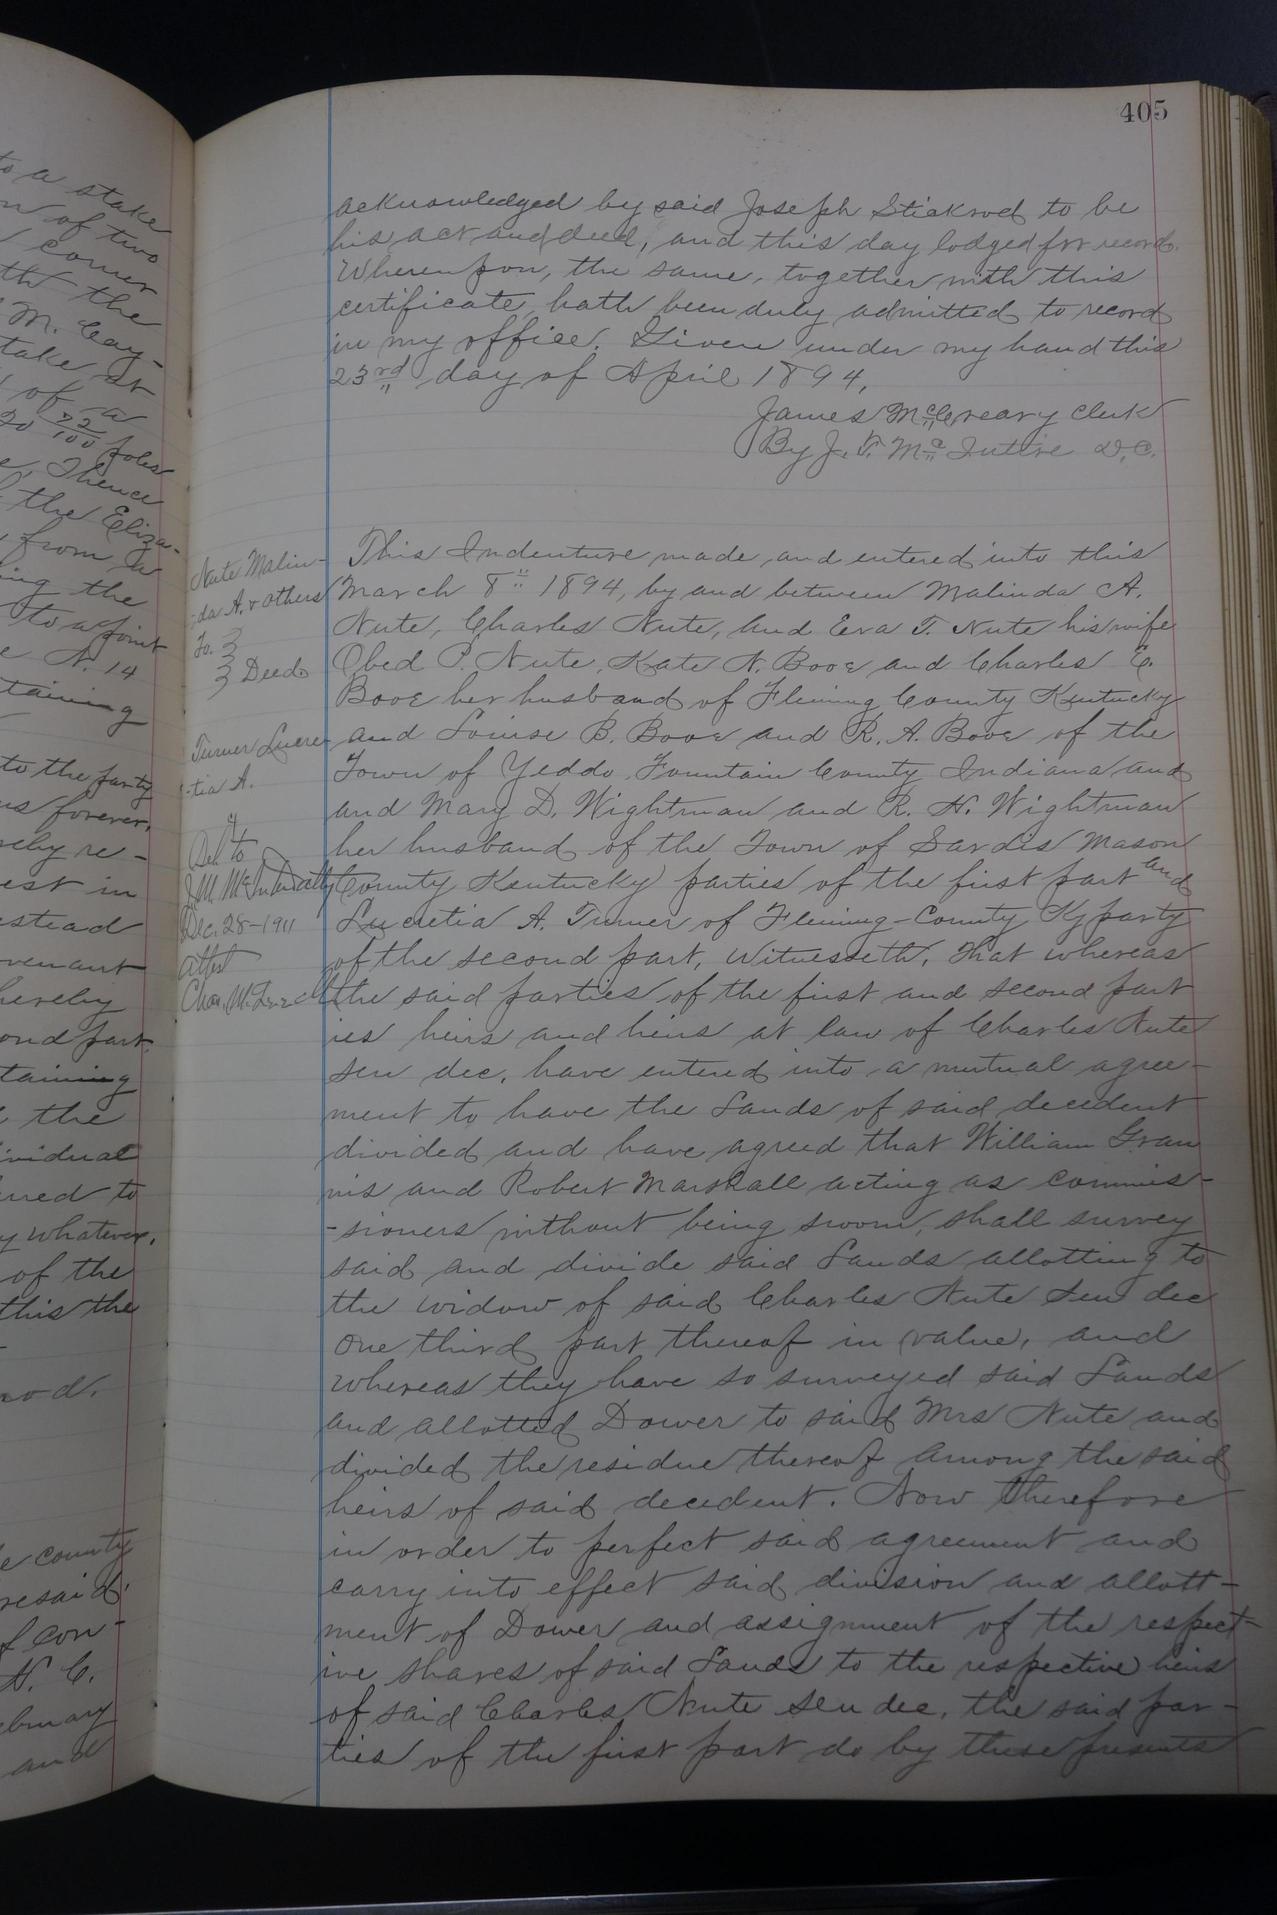 405
to a stake
n of two
corner
th the
M. Cay-
take at
of a
20 72/100 poles
e, Thence
the Eliza-
from a
ing the
to a point
e N. 14
taining
to the party
us forever,
reby re-
est in
stead
venant
hereby
ond part.
taining
the
ividual
rred to
y whatever,
of the
this the
rod.
e county
resaid,
f Con-
N. C.
ebruary
and
acknowledged by said Joseph Stickrod to be
his act and deed, and this day lodged for record.
Whereupon, the same, together with this
certificate hath been duly admitted to record
in my office. Given under my hand this
23rd day of April 1894,
James McCreary Clerk
By J. T. McIntire D.C.
Nute Malin-
-da A. & others
To.
Deed
Turner Lucre-
-tia A.
Del to
J.M. McIn
Dec. 28-1911
attest
Chas. M.
This Indenture made, and entered into this
March 8" 1894, by and between Malinda A.
Nute, Charles Nute, and Eva T. Nute his wife
Obed P. Nute, Kate N. Booe and Charles E.
Booe her husband of Fleming County Kentucky
and Louise B. Booe and R. A. Booe of the
Town of Yeddo Fountain County Indiana and
and Mary D. Wightman and R. H. Wightman
her husband of the Town of Sardis Mason
County Kentucky parties of the first part and
Lucretia A. Turner of Fleming-County Ky party
of the second part, Witnesseth, that whereas
the said parties of the first and second part
ies heirs and heirs at law of Charles Nute
sen dec. have entered into a mutual agree-
ment to have the Lands of said decedent
divided and have agreed that William Gran
nis and Robert Marshall acting as commis-
-sioners without being sworn, shall survey
said and divide said Lands allotting to
the widow of said Charles Nute Sen dec
one third part thereof in value, and
whereas they have so surveyed said Lands
and allotted Dower to said Mrs Nute and
divided the residue thereof among the said
heirs of said decedent. Now therefore
in order to perfect said agreement and
carry into effect said division and allott-
ment of Dower and assignment of the respect-
ive shares of said Lands to the respective heirs
of said Charles Nute sen dec. the said par-
ties of the first part do by these presents